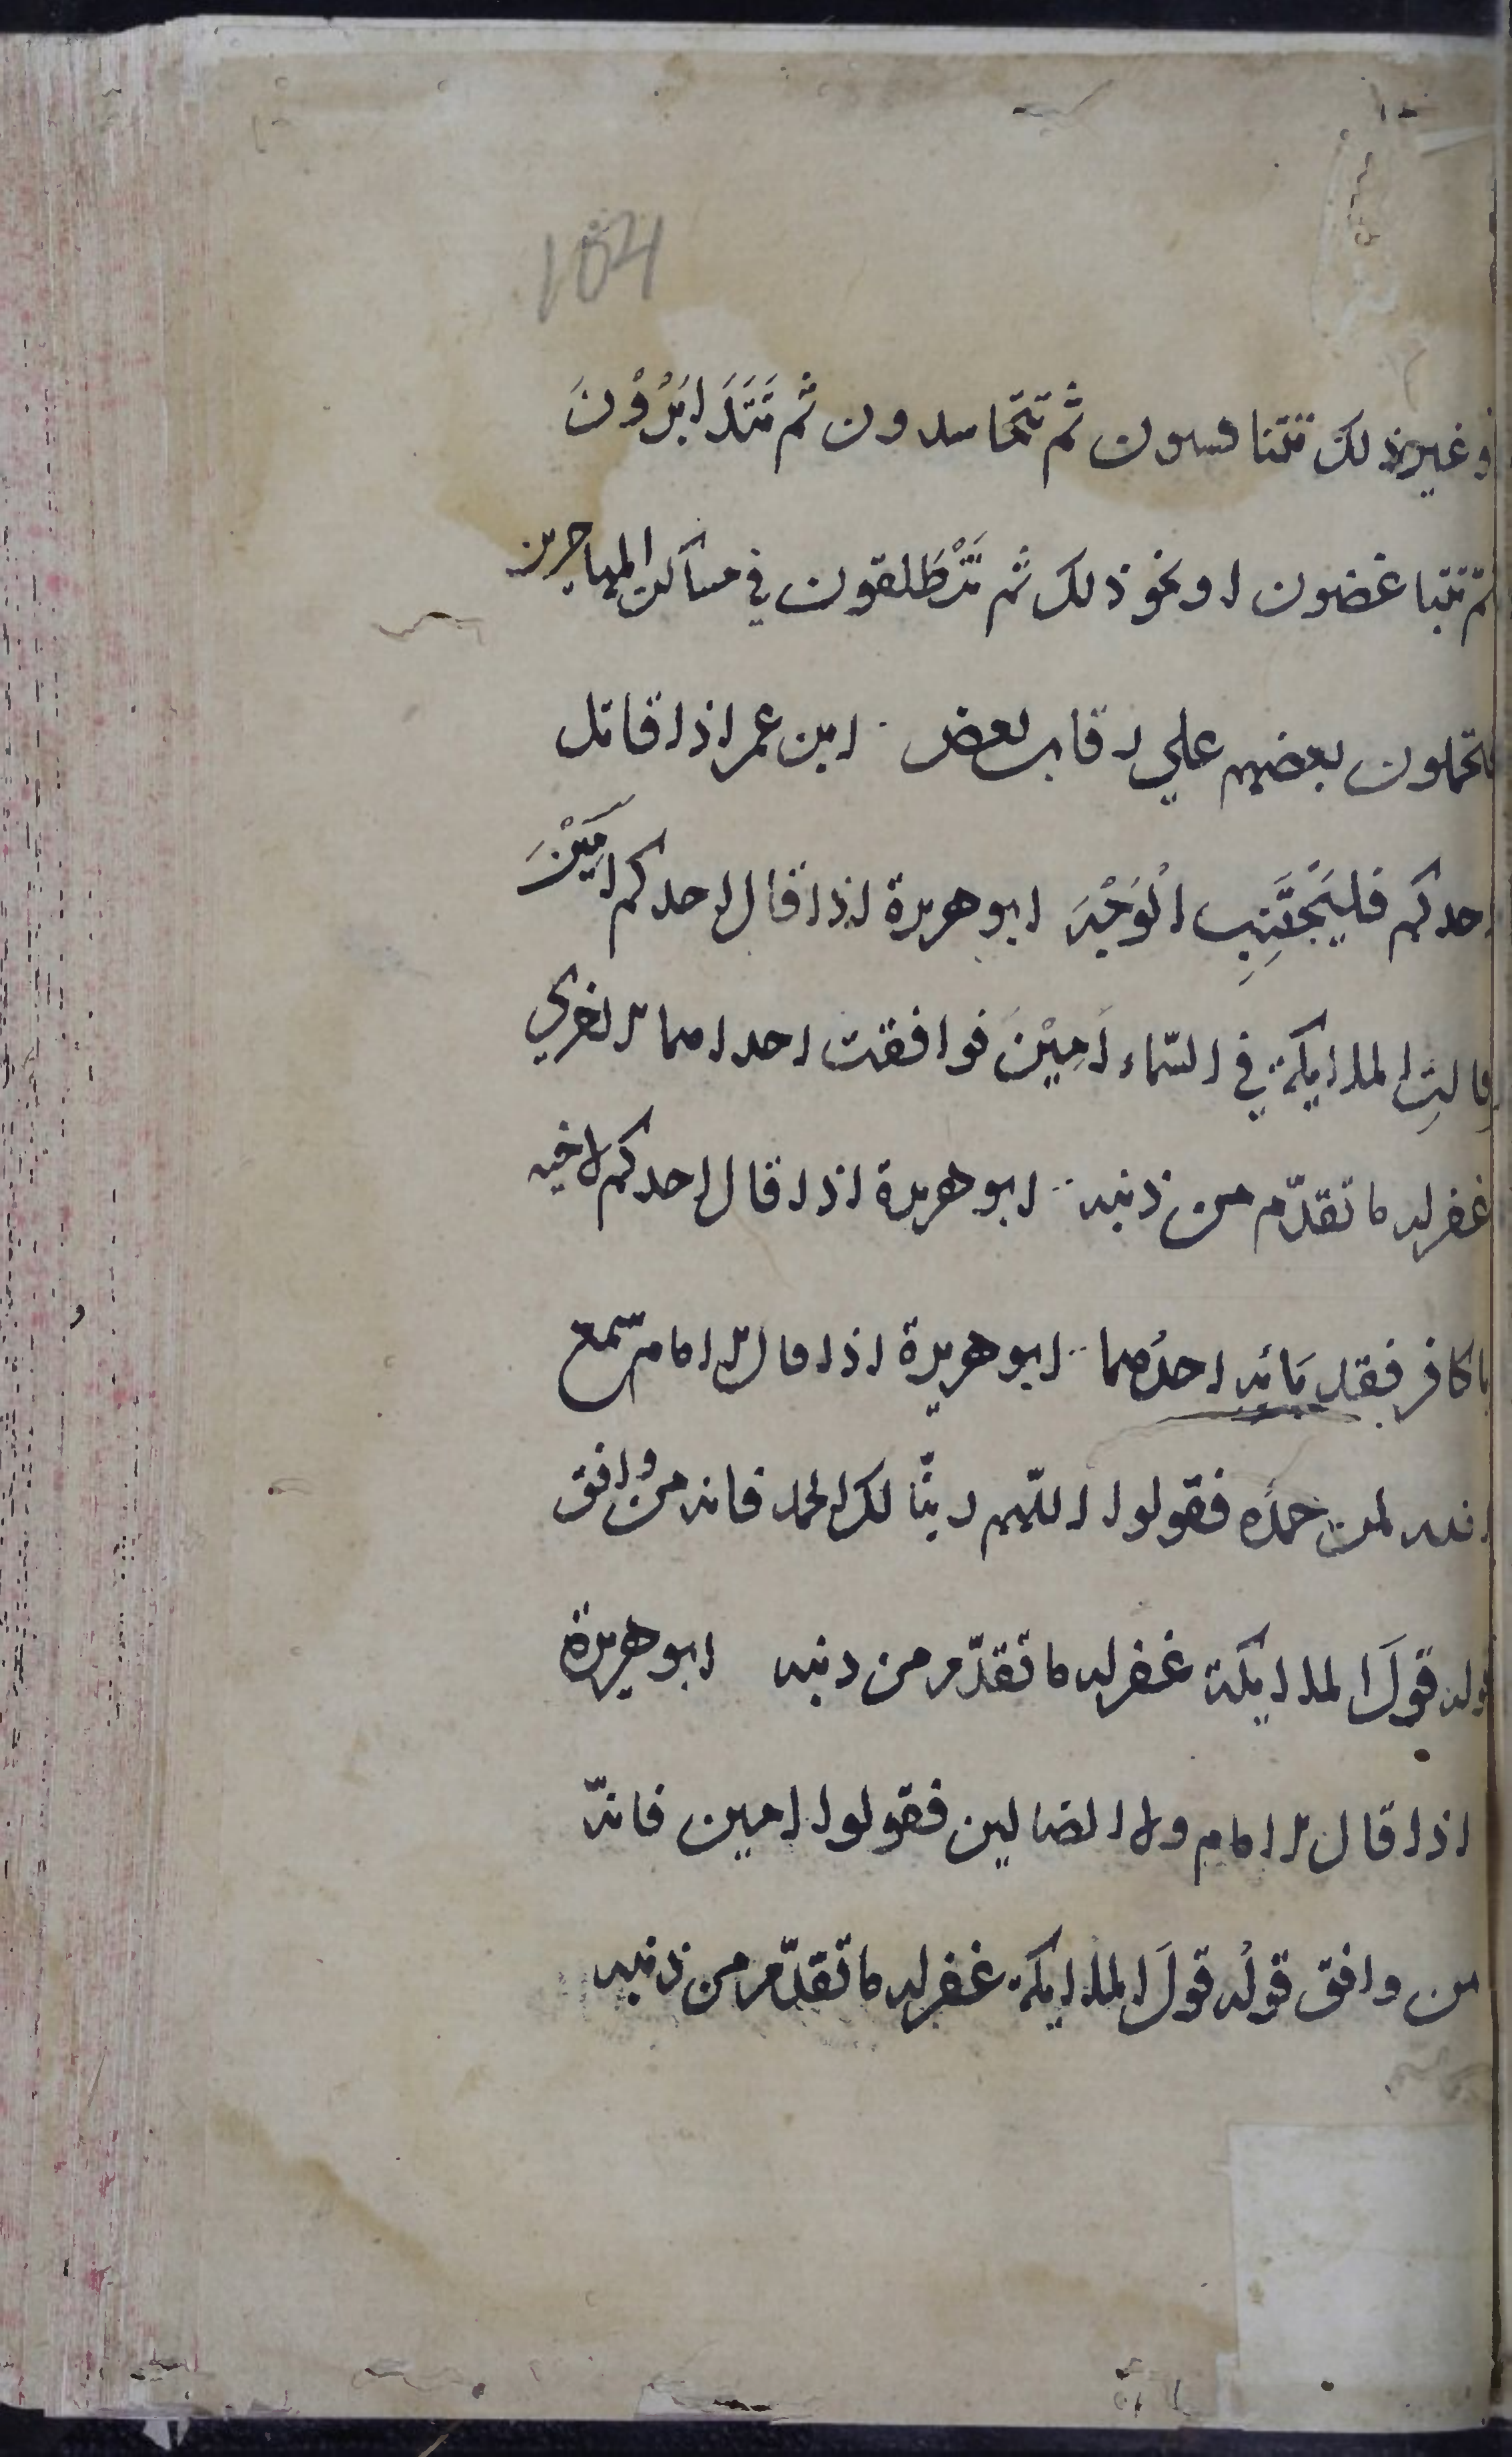 104
او غير ذلك تتنافسون ثم تتحاسدون ثم تَتَدَابَرُوْنَ
ثم تتباغضون او نحو ذلك ثم تَنْطَلقون في مساكن المهاجرين
فتحملون بعضهم علي رقاب بعض ابن عمر اذا قاتل
احدكم فليَجْتَنِبِ الْوَجْهَ ابو هريرة اذا قال احدكم امِيْنَ
وقالتِ الملايكة في السّماء اَمِيْنَ فوافقت احداهما الاخري
غفر له ما تقدّم من ذنبه ابو هريرة اذا قال احدكم لاخيه
يا كافر فقد بَائه احدُهما ابو هريرة اذا قال الامام سمع
الله لمن حمدَه فقولوا اللّهم ربنّا لك الحمد فانه من وافق
قوله قولَ الملايكة غفر له ما تقدّم من ذنبه ابو هريرة
اذا قال الامام ولا الضالين فقولوا امين فانّه
من وافق قولُه قولَ الملايكة غفر له ما تقدّم من ذنبه